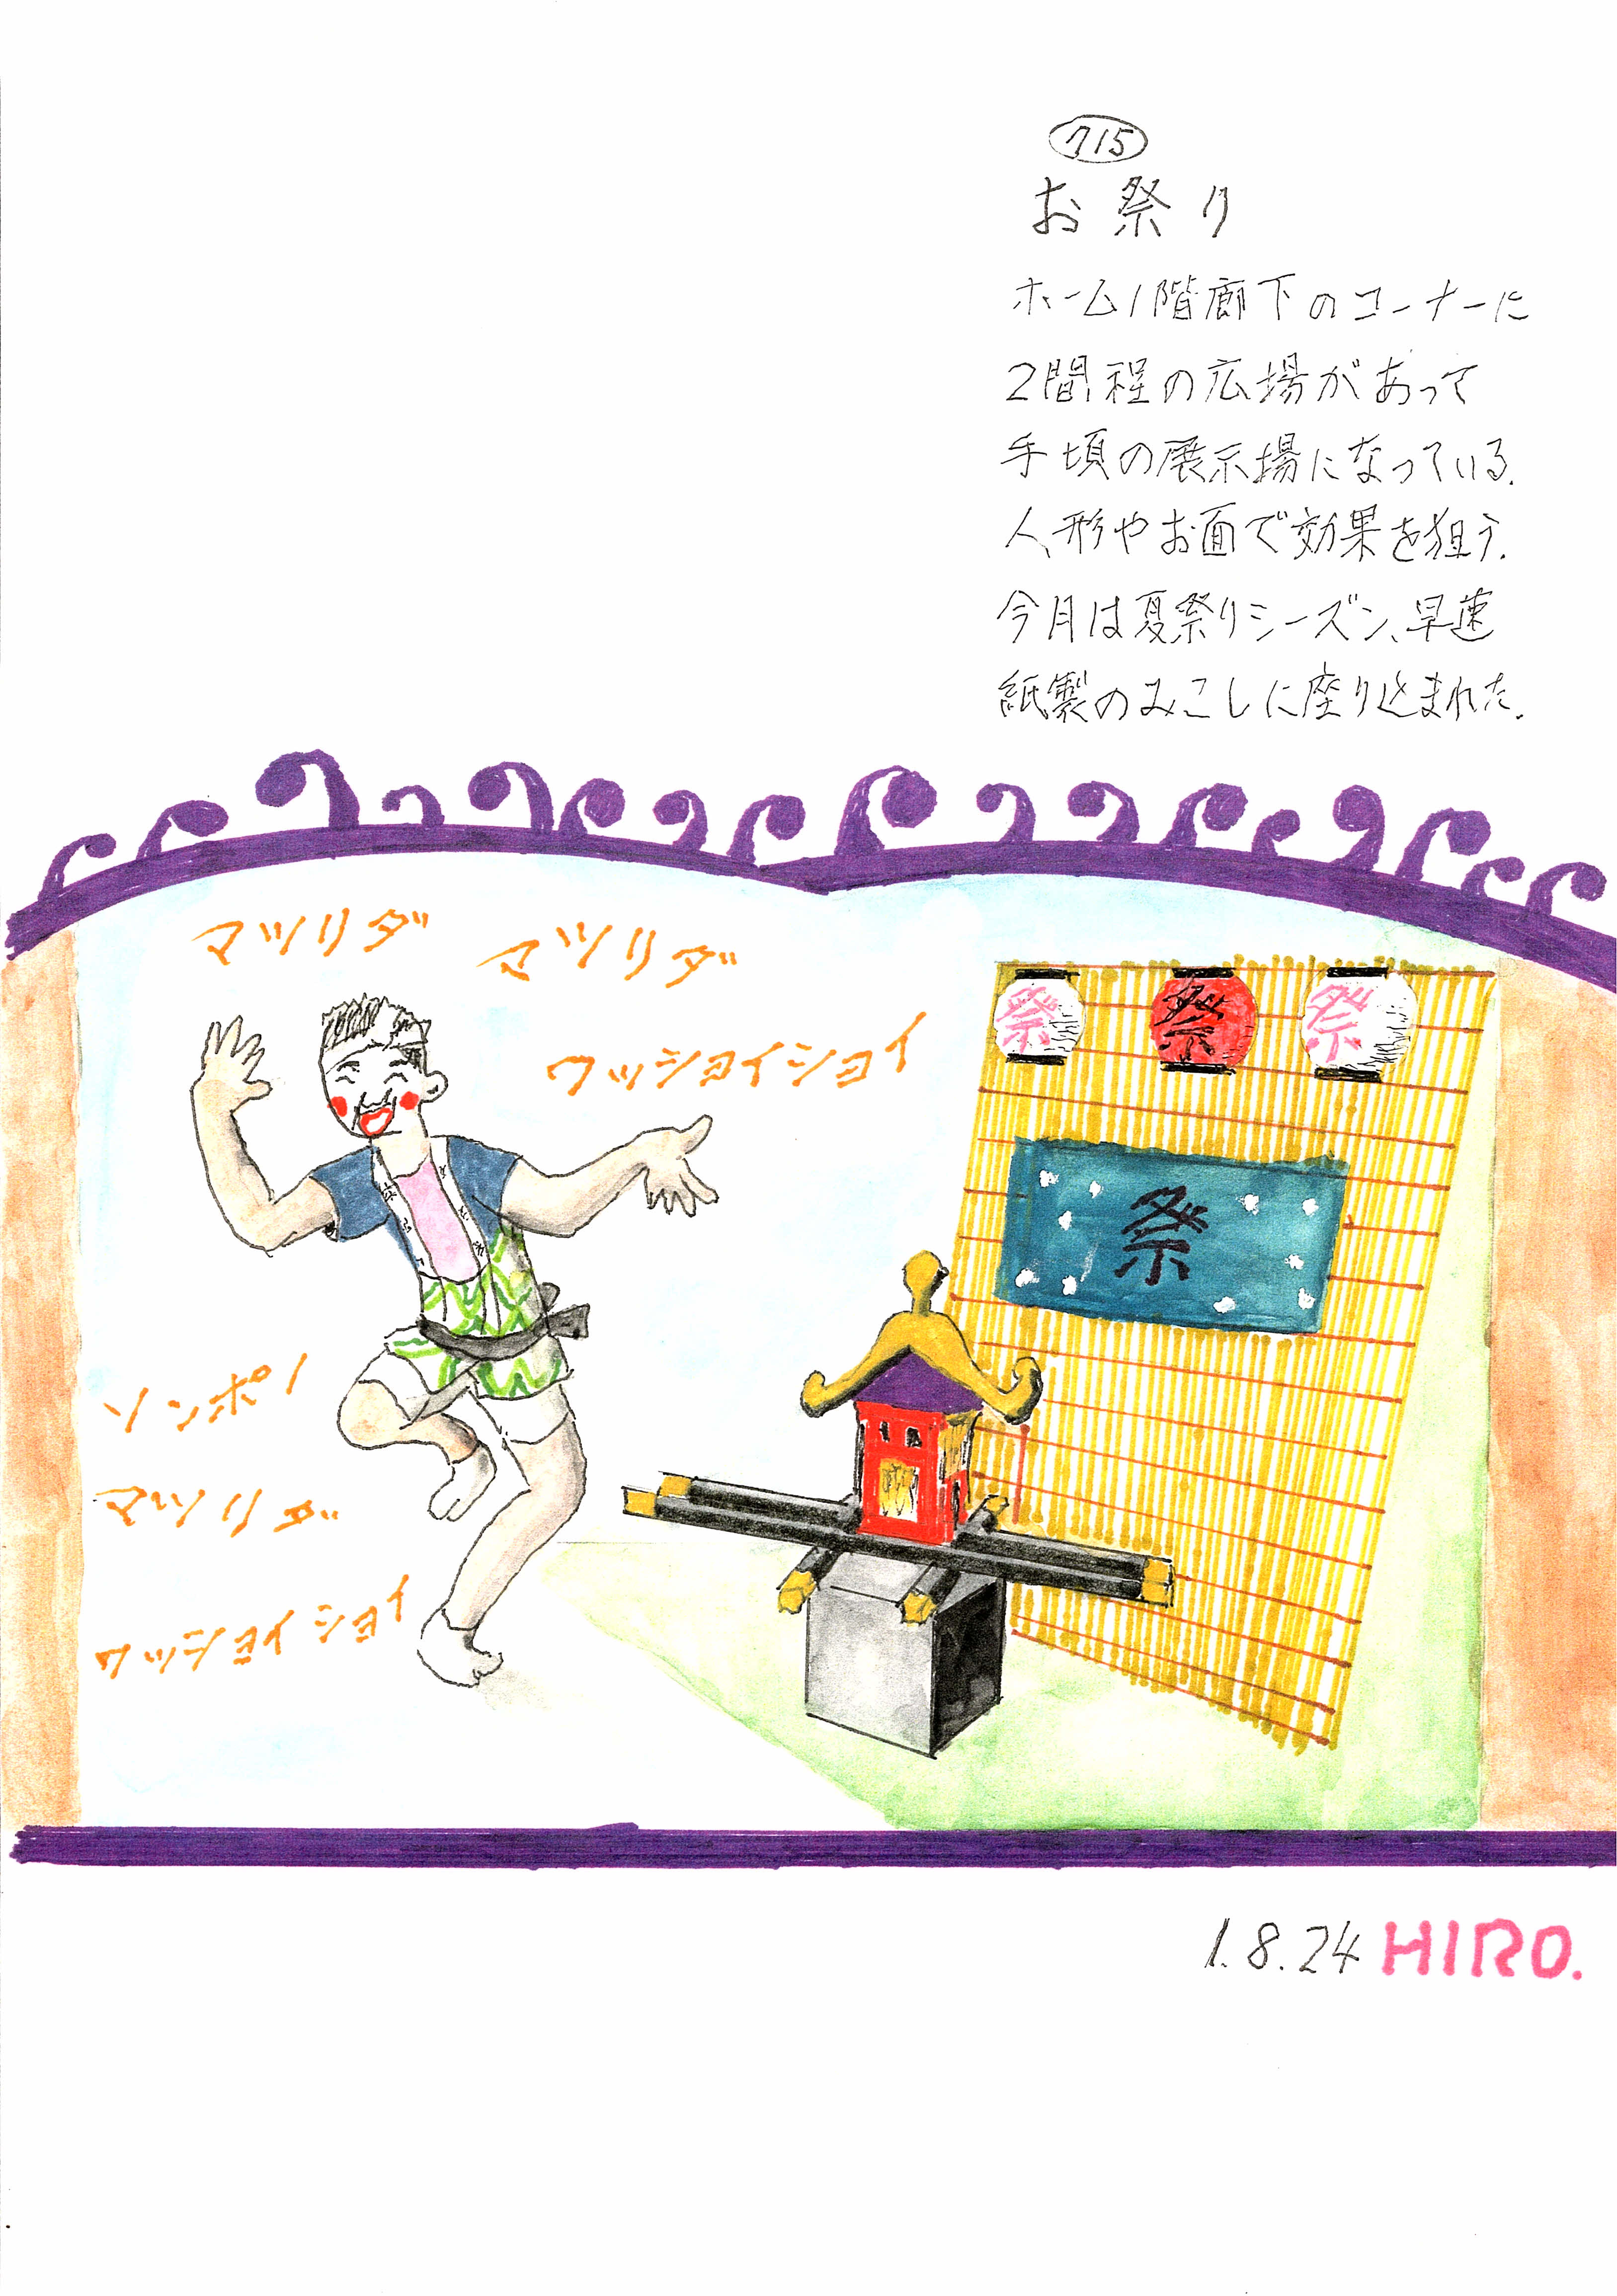 715
お祭り
ホーム1階廊下のコーナーに
2間程の広場があって
手頃の展示場になっている.
人形やお面で効果を狙う.
今月は夏祭りシーズン、早速
紙製のみこしに座り込まれた.
マツリダ マツリダ
ワッショイショイ
祭 祭 祭
祭
ソンポノ
マツリダ
ワッショイショイ
1.8.24 HIRO.